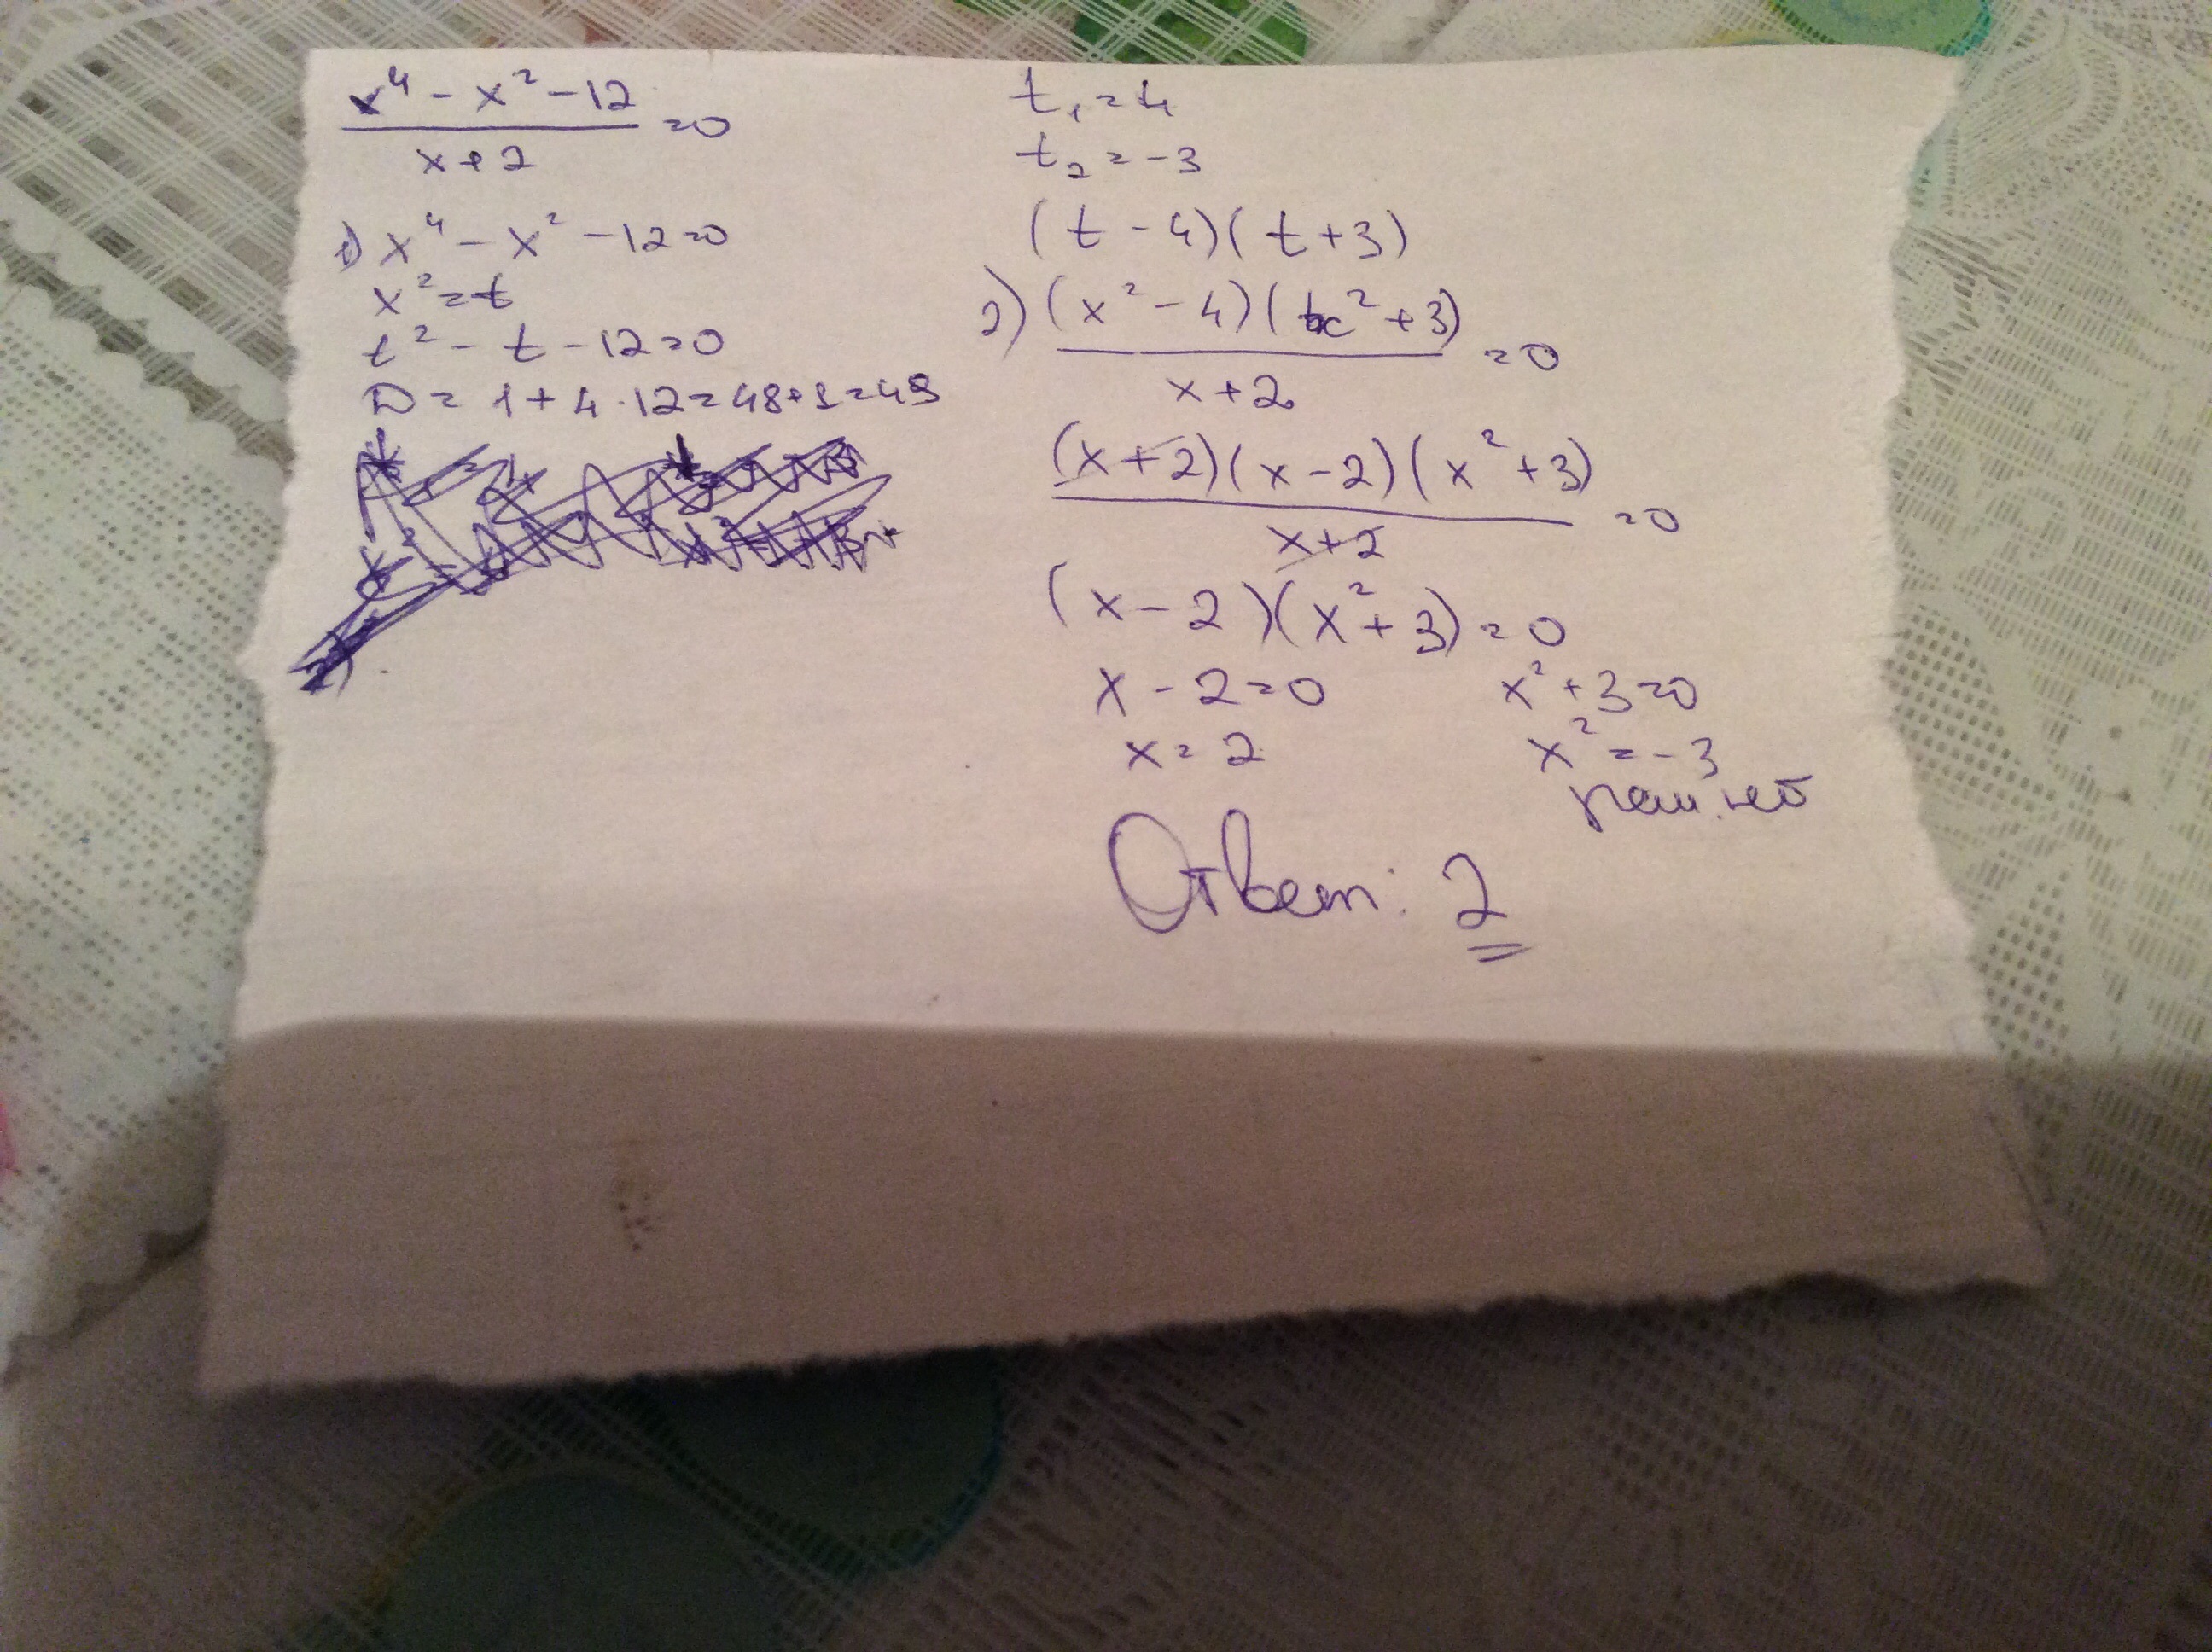 x⁴ - x² - 12
x + 2
= 0
1) x⁴ - x² - 12 = 0
x² = t
t² - t - 12 = 0
D = 1 + 4 · 12 = 48 + 1 = 49
t₁ = 4
t₂ = -3
(t - 4)(t + 3)
2) (x² - 4)(x² + 3)
x + 2
= 0
(x + 2)(x - 2)(x² + 3)
x + 2
= 0
(x - 2)(x² + 3) = 0
x - 2 = 0 x² + 3 = 0
x = 2 x² = -3
реш. нет
Ответ: 2